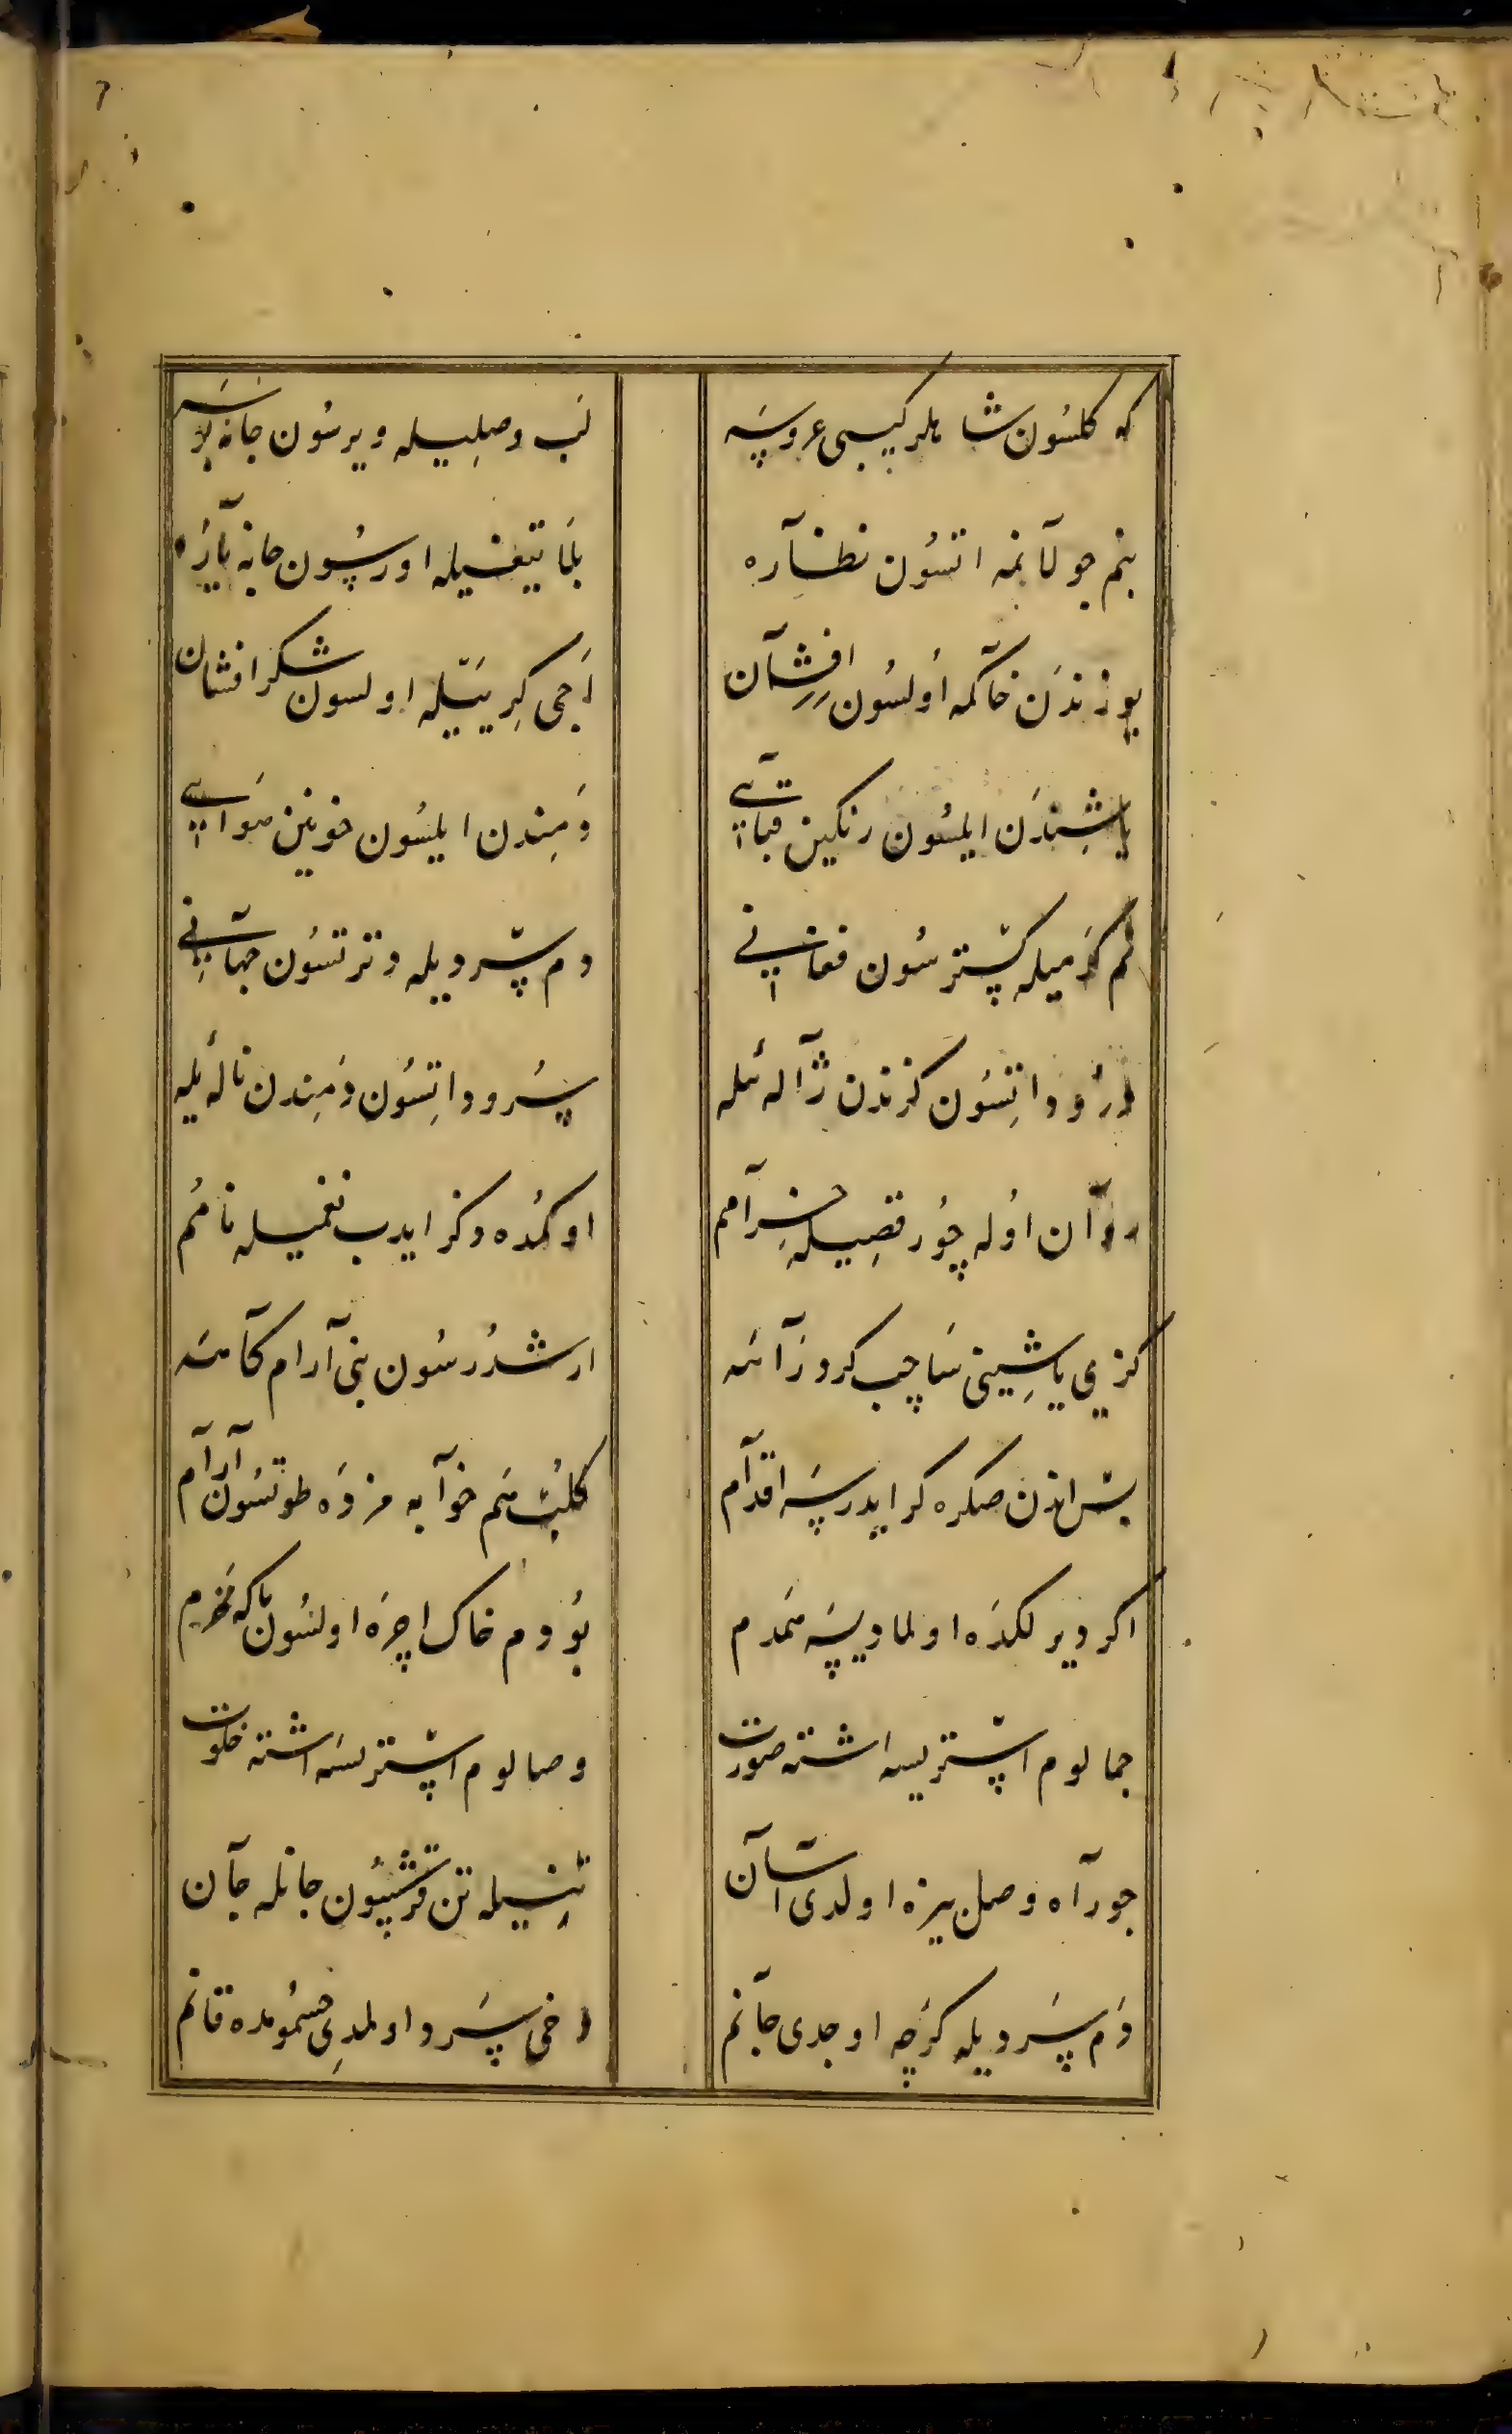 که کلسُون شاهلر کیبی عروسَه
لَب وصلِیله ویرسُون جانه بوسَه
بنم جولآنمه اتسُون نظآره
بلا تیغیله اورسُون جانه یآره
یوزندَن خاکمه اُولسُون زرافشآن
اَجی کِریَیله اولسون شکرافشان
یاشِندَن ایلسُون رنکین قبآیی
دَمِندن ایلسُون خونین هوایی
لم کرَمیله کسترسُون فغانی
دم سردیله دترتسُون جهآنِی
درُود اتِسُون کزندن ژآله ئله
سُرود اتِسُون دَمِندن نالَه ئیله
روآن اُوله چُو رقصِیله خِرآمم
اوکمُده ذکر ایدب نغمیله نامُم
کزی یاشِینی سَاچب کروزآسَه
ارشدُرسُون بنی آرام کآمَه
بس اندن صکره کر ایدرسَه اقدآم
کلبُ هَم خوآبه مزدَه طوتسُون آرآم
اکر دیرلکدَه اولمادیسَه هَمدم
بُو دم خاک اچرَه اولسُون باکه مَحرم
جمالوم استریسه اشته صورت
وصالوم استریسَه اشته خلوت
چو رآه وصل بیزه اولدی آسآن
تنِیله تن قرشسُون جانله جآن
دَم سَردیله کرَچه اوچدی جآنم
دخی سَرد اولمدِی جسمُومده قانم